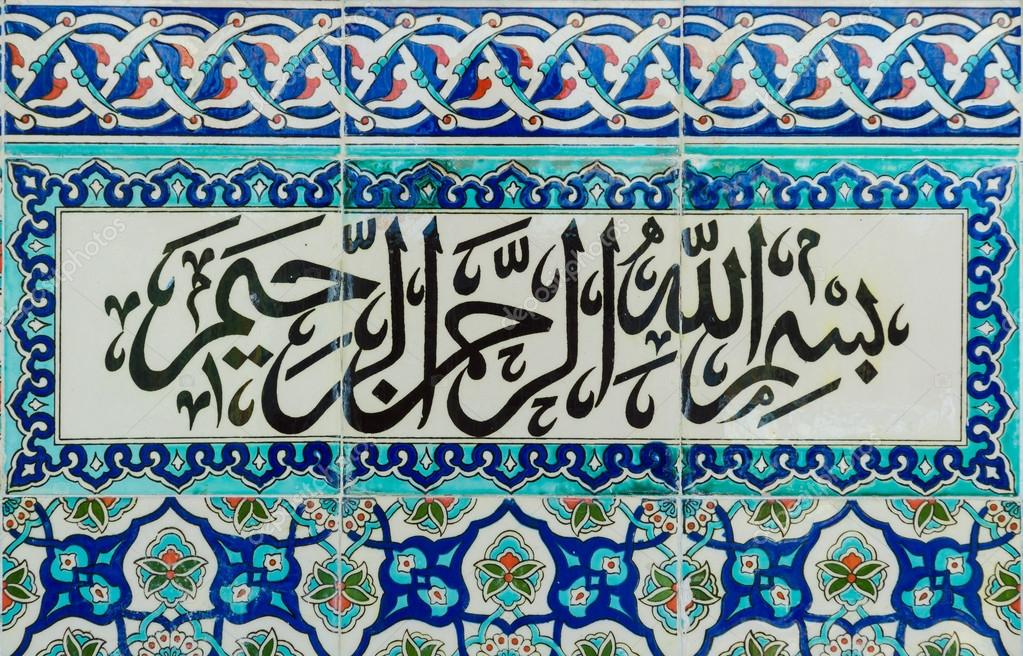 بسم الله الرحمن الرحيم
depositphotos